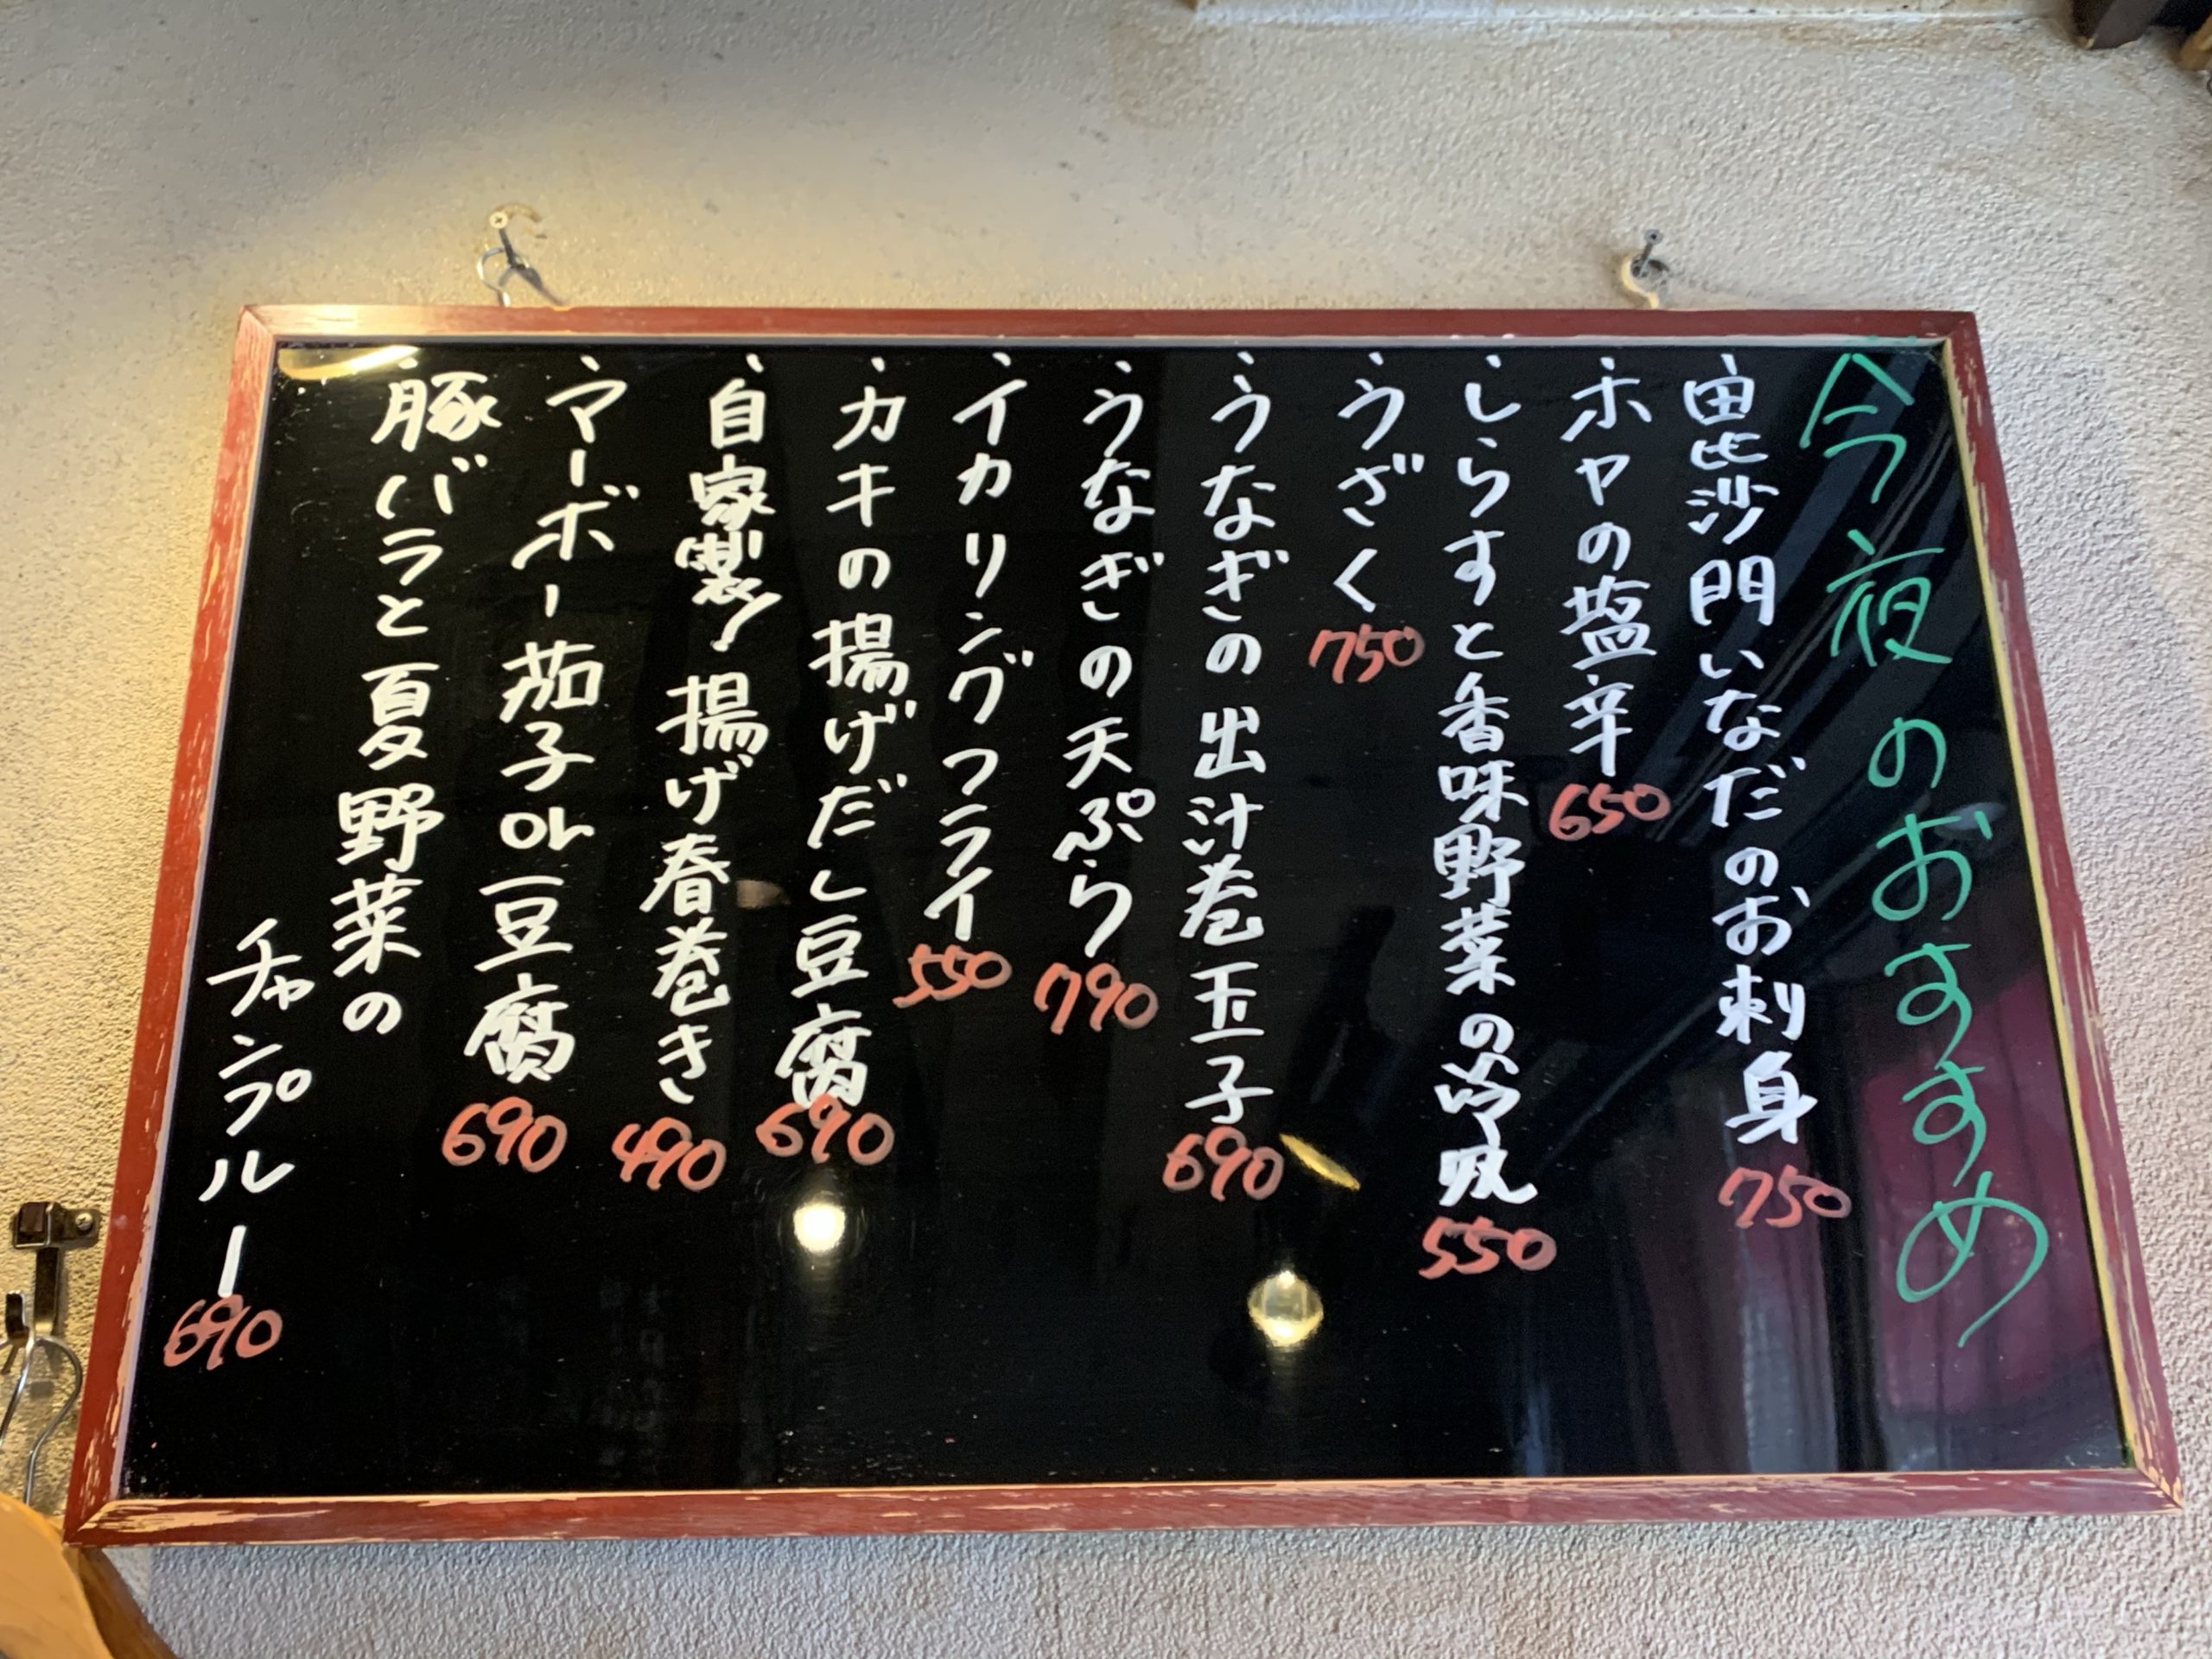 今夜のおすすめ
・毘沙門いなだのお刺身 750
・ホヤの塩辛 650
・しらすと香味野菜の冷奴 550
・うざく 750
・うなぎの出汁巻玉子 690
・うなぎの天ぷら 790
・イカリングフライ 550
・カキの揚げだし豆腐 690
・自家製！揚げ春巻き 490
・マーボー茄子or豆腐 690
・豚バラと夏野菜の
チャンプルー 690